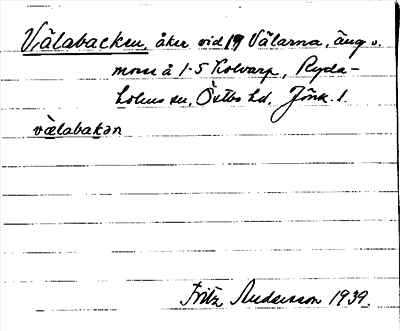 Välabacken, åker vid 1⁹ Välarna, äng o.
mosse å 1-5 Kolvarp, Ryda-
holms sn, Östbo hd, Jönk. l.
vælabakən
Fritz Andersson 1939.